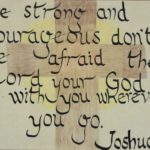 e strong and
ourageous don't
e afraid the
Lord your God
with you wherev
you go.
Joshua